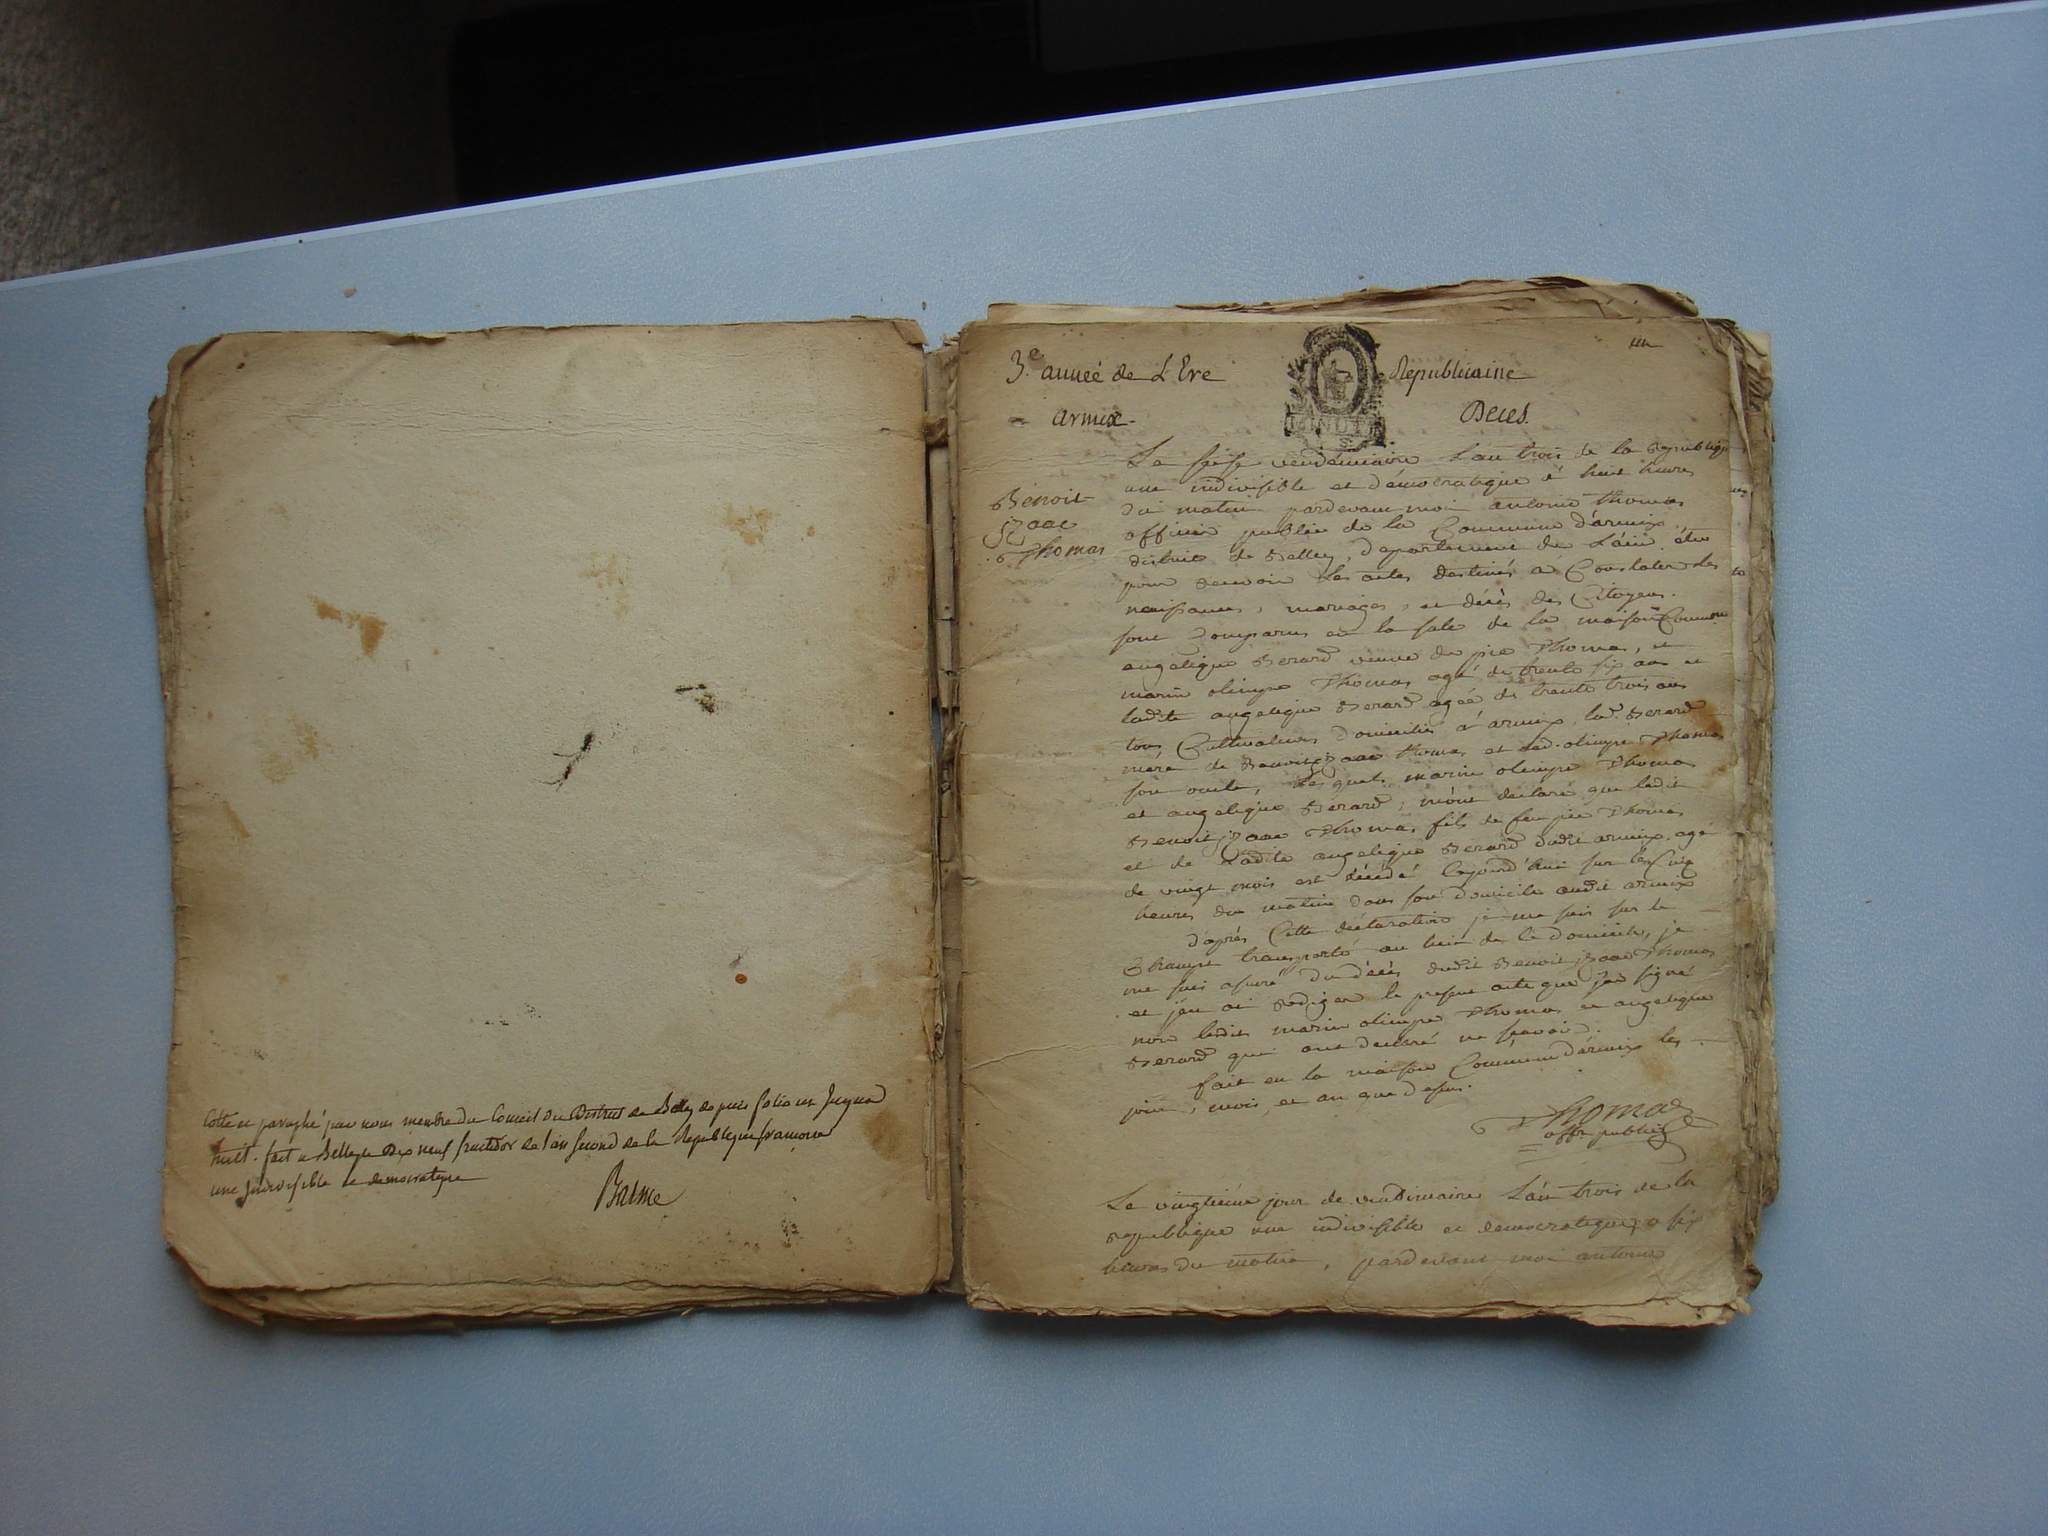 Cotté et paraphé par nous membre du Conseil du District de Belley depuis folio un jusqua
huit. fait a Belley le dix neuf fructidor de l'an second de la Republique francoise
une jndivisible et democratique
un
3.e anneé de L'Ere Republicaine
armix. Deces.
MINUT
Benoit
jzaac
Thomas
Le seise vendémiaire L'an trois de la Republique
une indivisible et démocratique à huit heures
du matin pardevant moi antoine Thomas
officier public de la Commune d'armix,
district de Belley, departement de L'ain élu
pour recevoir les actes destinés a Constater les
naissances, mariages, et décès des Citoyens.
sont Comparus en la sale de la maison Commune
angelique Berard veuve de pie Thomas, et
marin olimpe Thomas agé de trente six ans et
ladite angelique Berard ageé de trente trois ans
tous Cultivateurs domiciliés à armix, lad. Berard
mere de Benoit jzaac Thomas et led. olimpe Thomas
son oncle, lesquels marin olimpe Thomas
et angelique Berard, m'ont declaré que ledit
Benoit jzaac Thomas fils de feu pie Thomas
et de Ladite angelique Berard dudit armix agé
de vingt mois est décédé Cejourd'hui sur les Cinq
heures du matin dans son domicile audit armix
d'après Cette déclaration je me suis sur le
Champ transporté au lieu de Ce domicile, je
me suis assuré du décès dudit Benoit jzaac Thomas
et j'en ai Rediger le present acte que j'ai signé
non ledit marin olimpe Thomas et angelique
Berard qui ont declaré ne savoir.
fait en la maison Commune d'armix les
jour, mois et an que dessus.
Thomas
offr. public
Le vingtieme jour de vendimiaire L'an trois de la
Republique une indivisible et democratique, a six
heures du matin, pardevant moi antoine